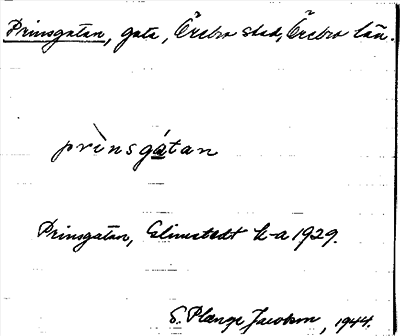 Prinsgatan, gata, Örebro stad, Örebro län.
prìnsgátan
Prinsgatan, Elmstedt k-a 1929.
S. Plænge Jacobson, 1944.